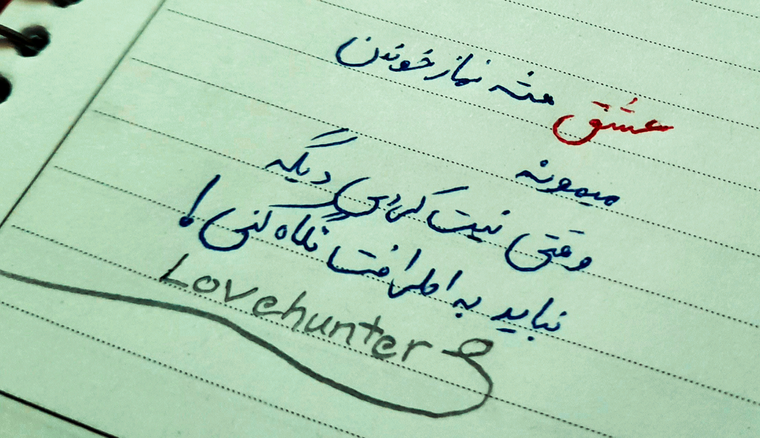 عشق مثه نماز خوندن
میمونه
وقتی نیت کردی دیگه
نباید به اطرافت نگاه کنی!
Lovehunter